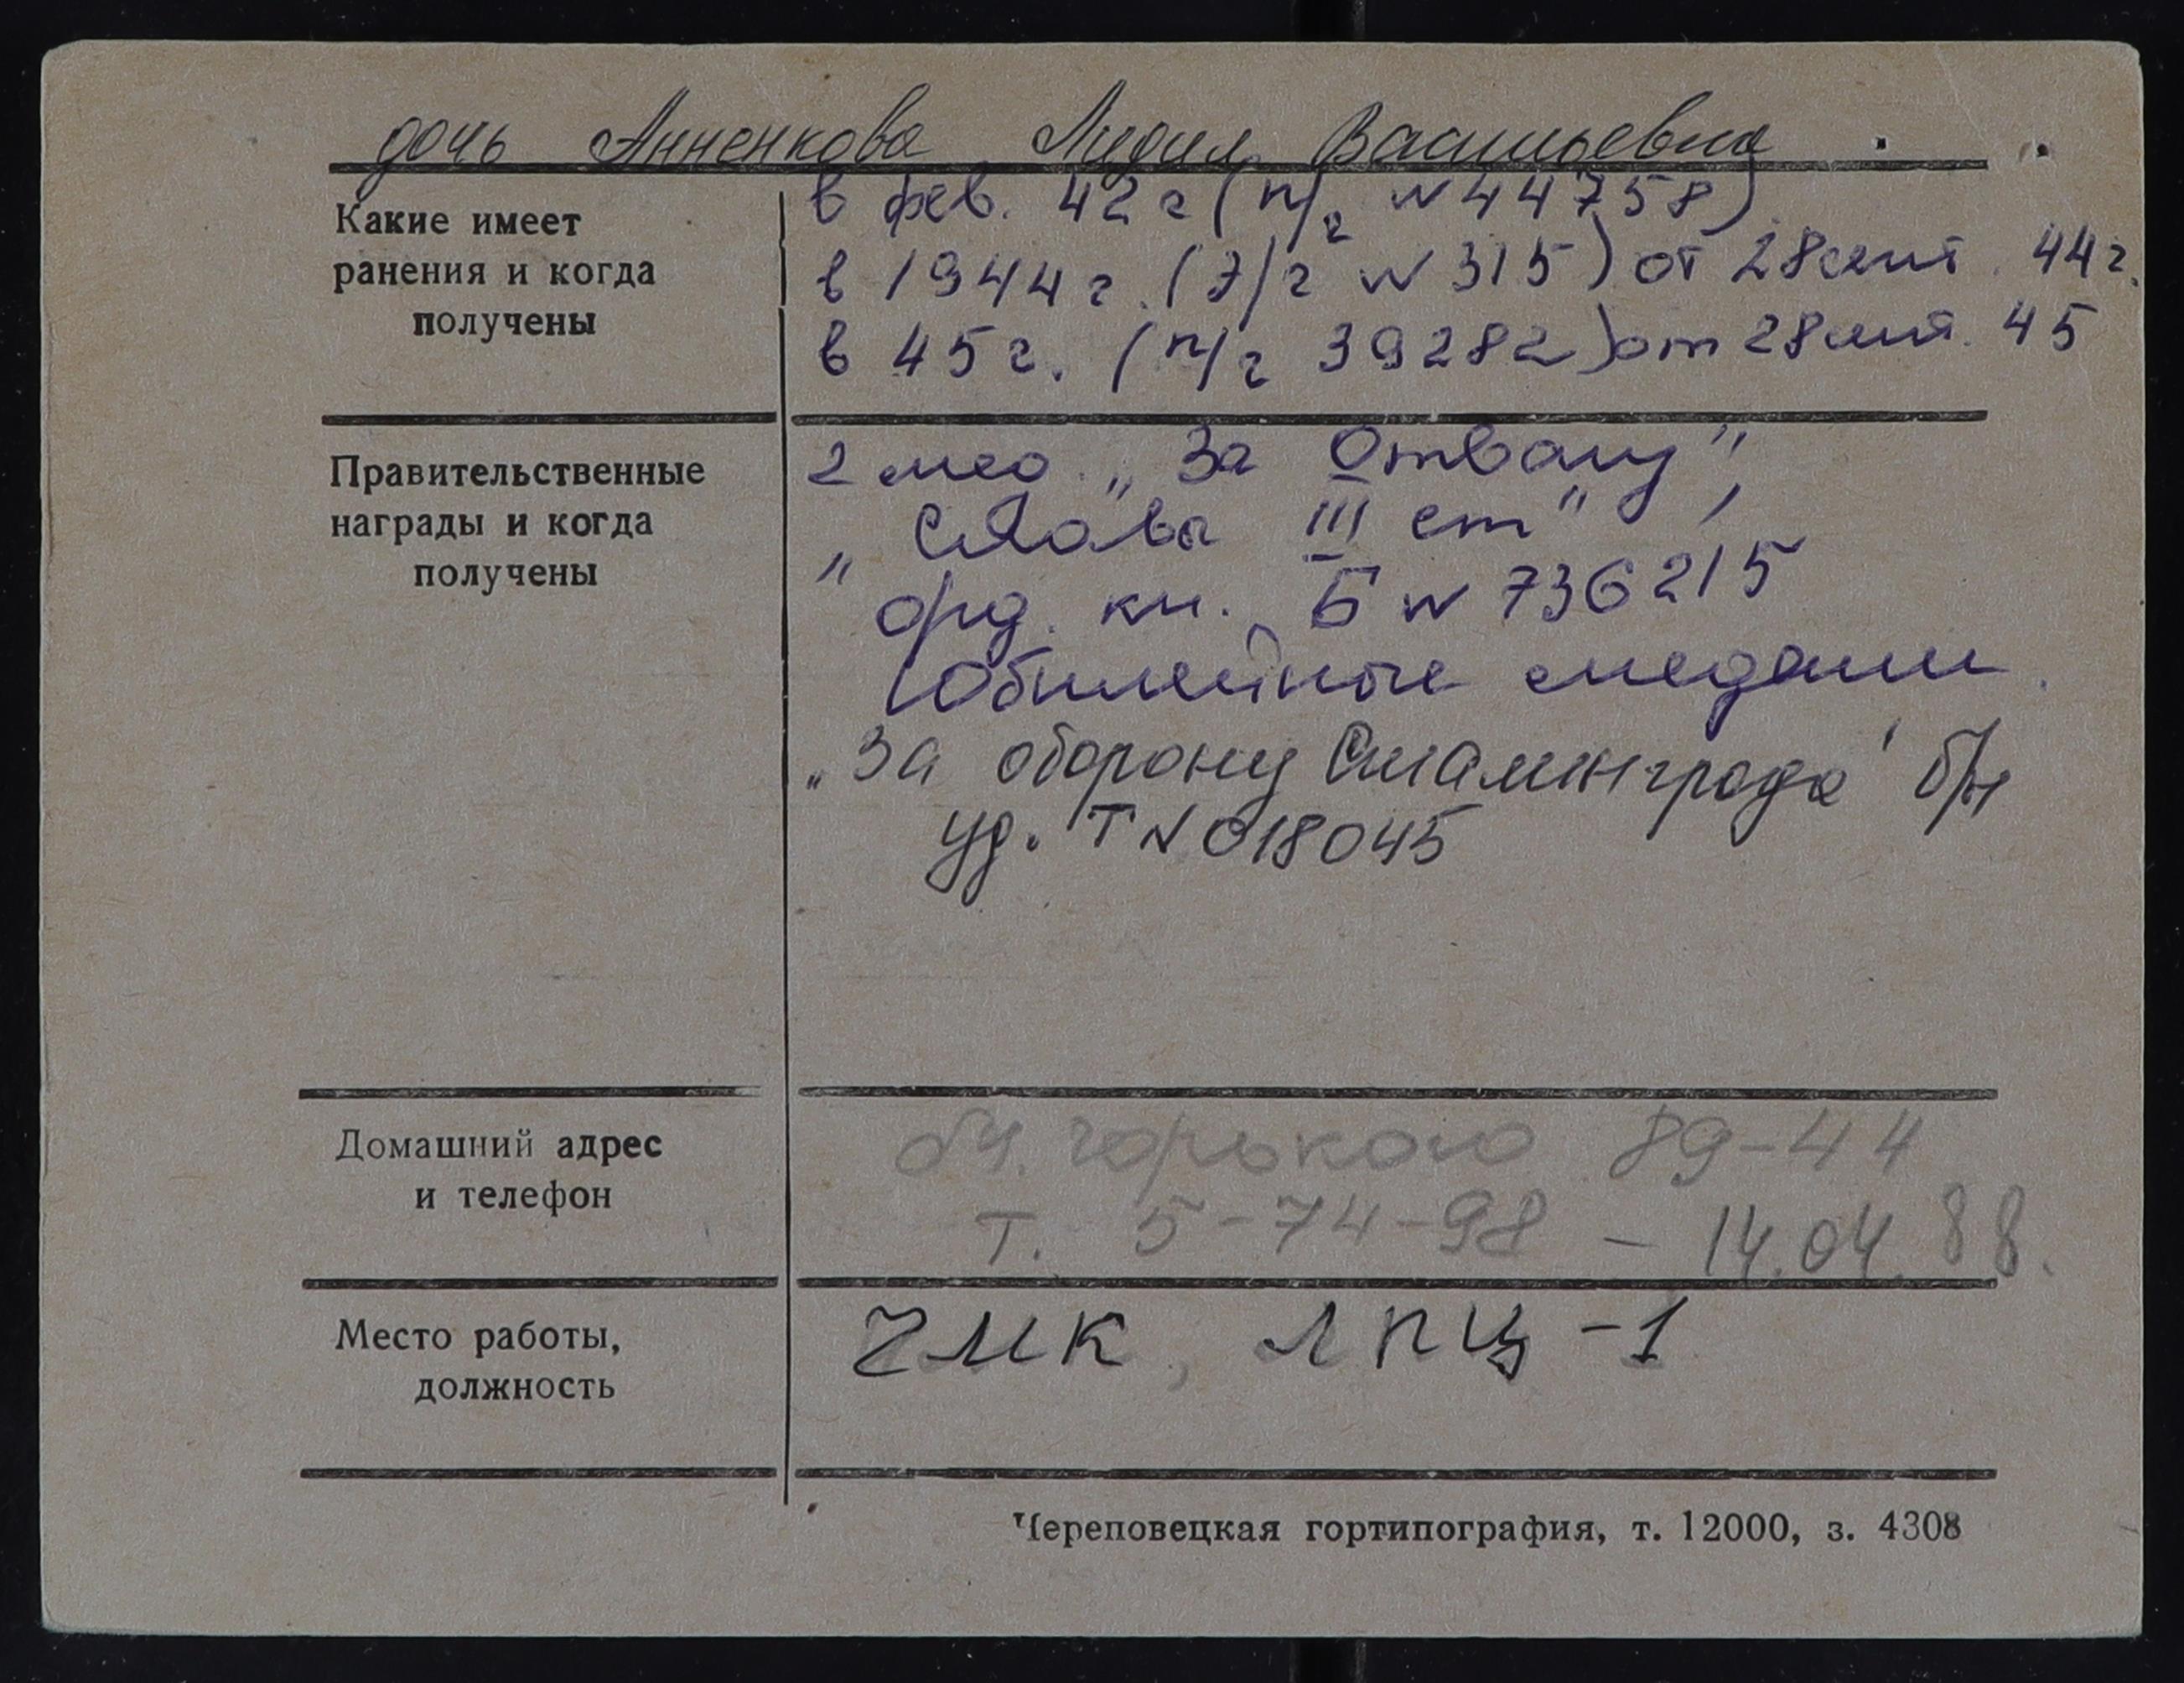 дочь Анненкова Лидия Васильевна
Какие имеет
ранения и когда
получены
в фев. 42 г (п/г N 44758)
в 1944 г. (э/г N 315) от 28 сент. 44 г.
в 45 г. (п/г 39282) от 28 45
Правительственные
награды и когда
получены
2 мед. „За Отвагу",
„Слава III ст",
орд. кн. Б N 736215
Юбилейные медали.
„За оборону Сталинграда" б/н
уд. Т N 018045
Домашний адрес
и телефон
Горького 89-44
т. 5-74-98 – 14.04.88.
Место работы,
должность
ЧМК, ЛПЦ-1
Череповецкая гортипография, т. 12000, з. 4308